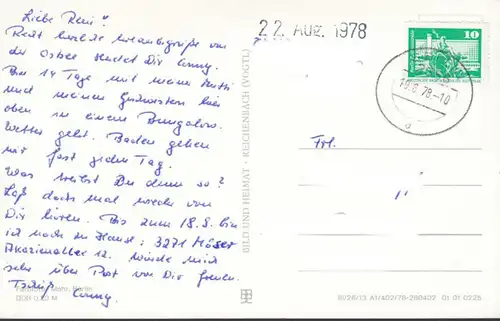 Liebe Reni!
Recht herzliche Urlaubsgrüße von
der Ostsee sendet Dir Conny.
Bin 14 Tage mit meiner Mutti
und meinen Geschwistern hier
oben in einem Bungalow.
Wetter geht. Baden gehen
wir fast jeden Tag.
Was treibst Du denn so?
Laß doch mal wieder von
Dir hören. Bis zum 18.8. bin
ich noch zu Hause: 3271 Möser
Akazienallee 12. Würde mich
sehr über Post von Dir freuen.
Tschüß Conny.
Mohr, Berlin
0,20 M
BILD UND HEIMAT · REICHENBACH (VOGTL)
22. AUG. 1978
10
.8.78-10
a
Frl.
"
A1/402/78 280402 01 01 0225